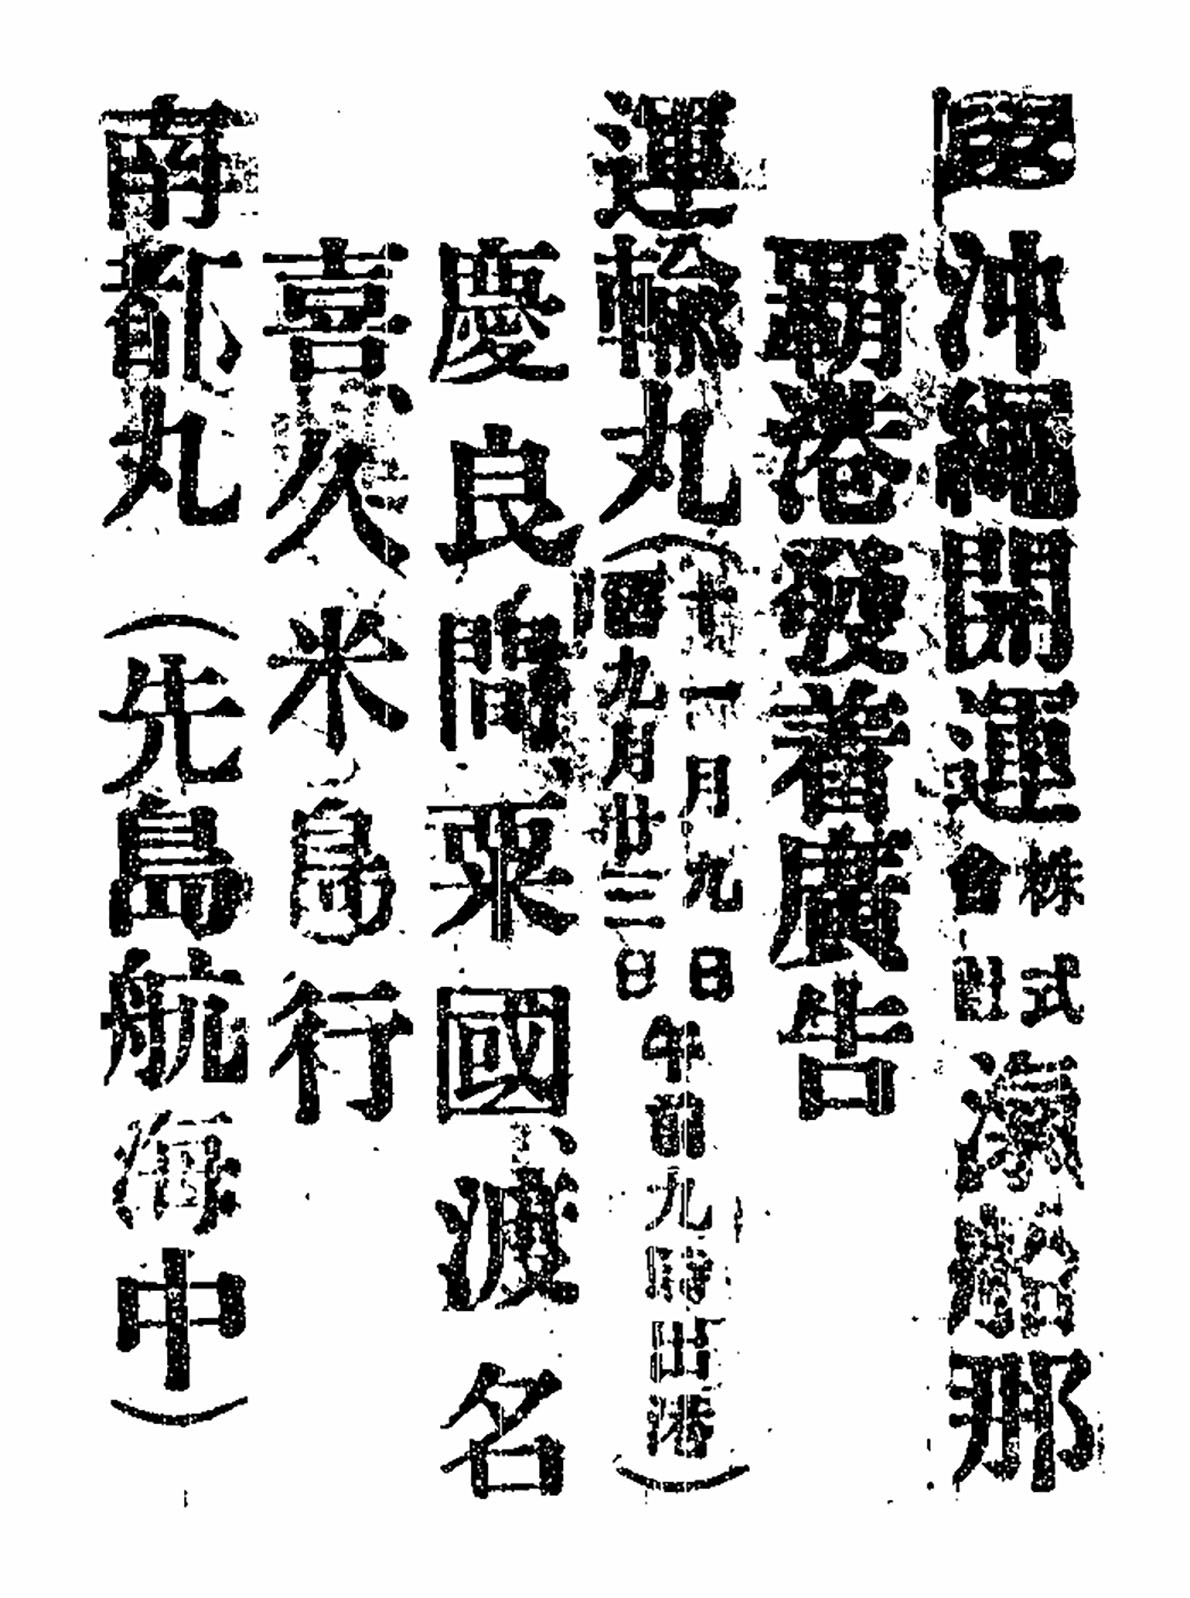 沖繩開運株式會社滊船那
覇港發着廣告
運輸丸(十一月九日
舊九月廿三日午前九時出港)
慶良間、粟國、渡名
喜、久米島行
南都丸(先島航海中)